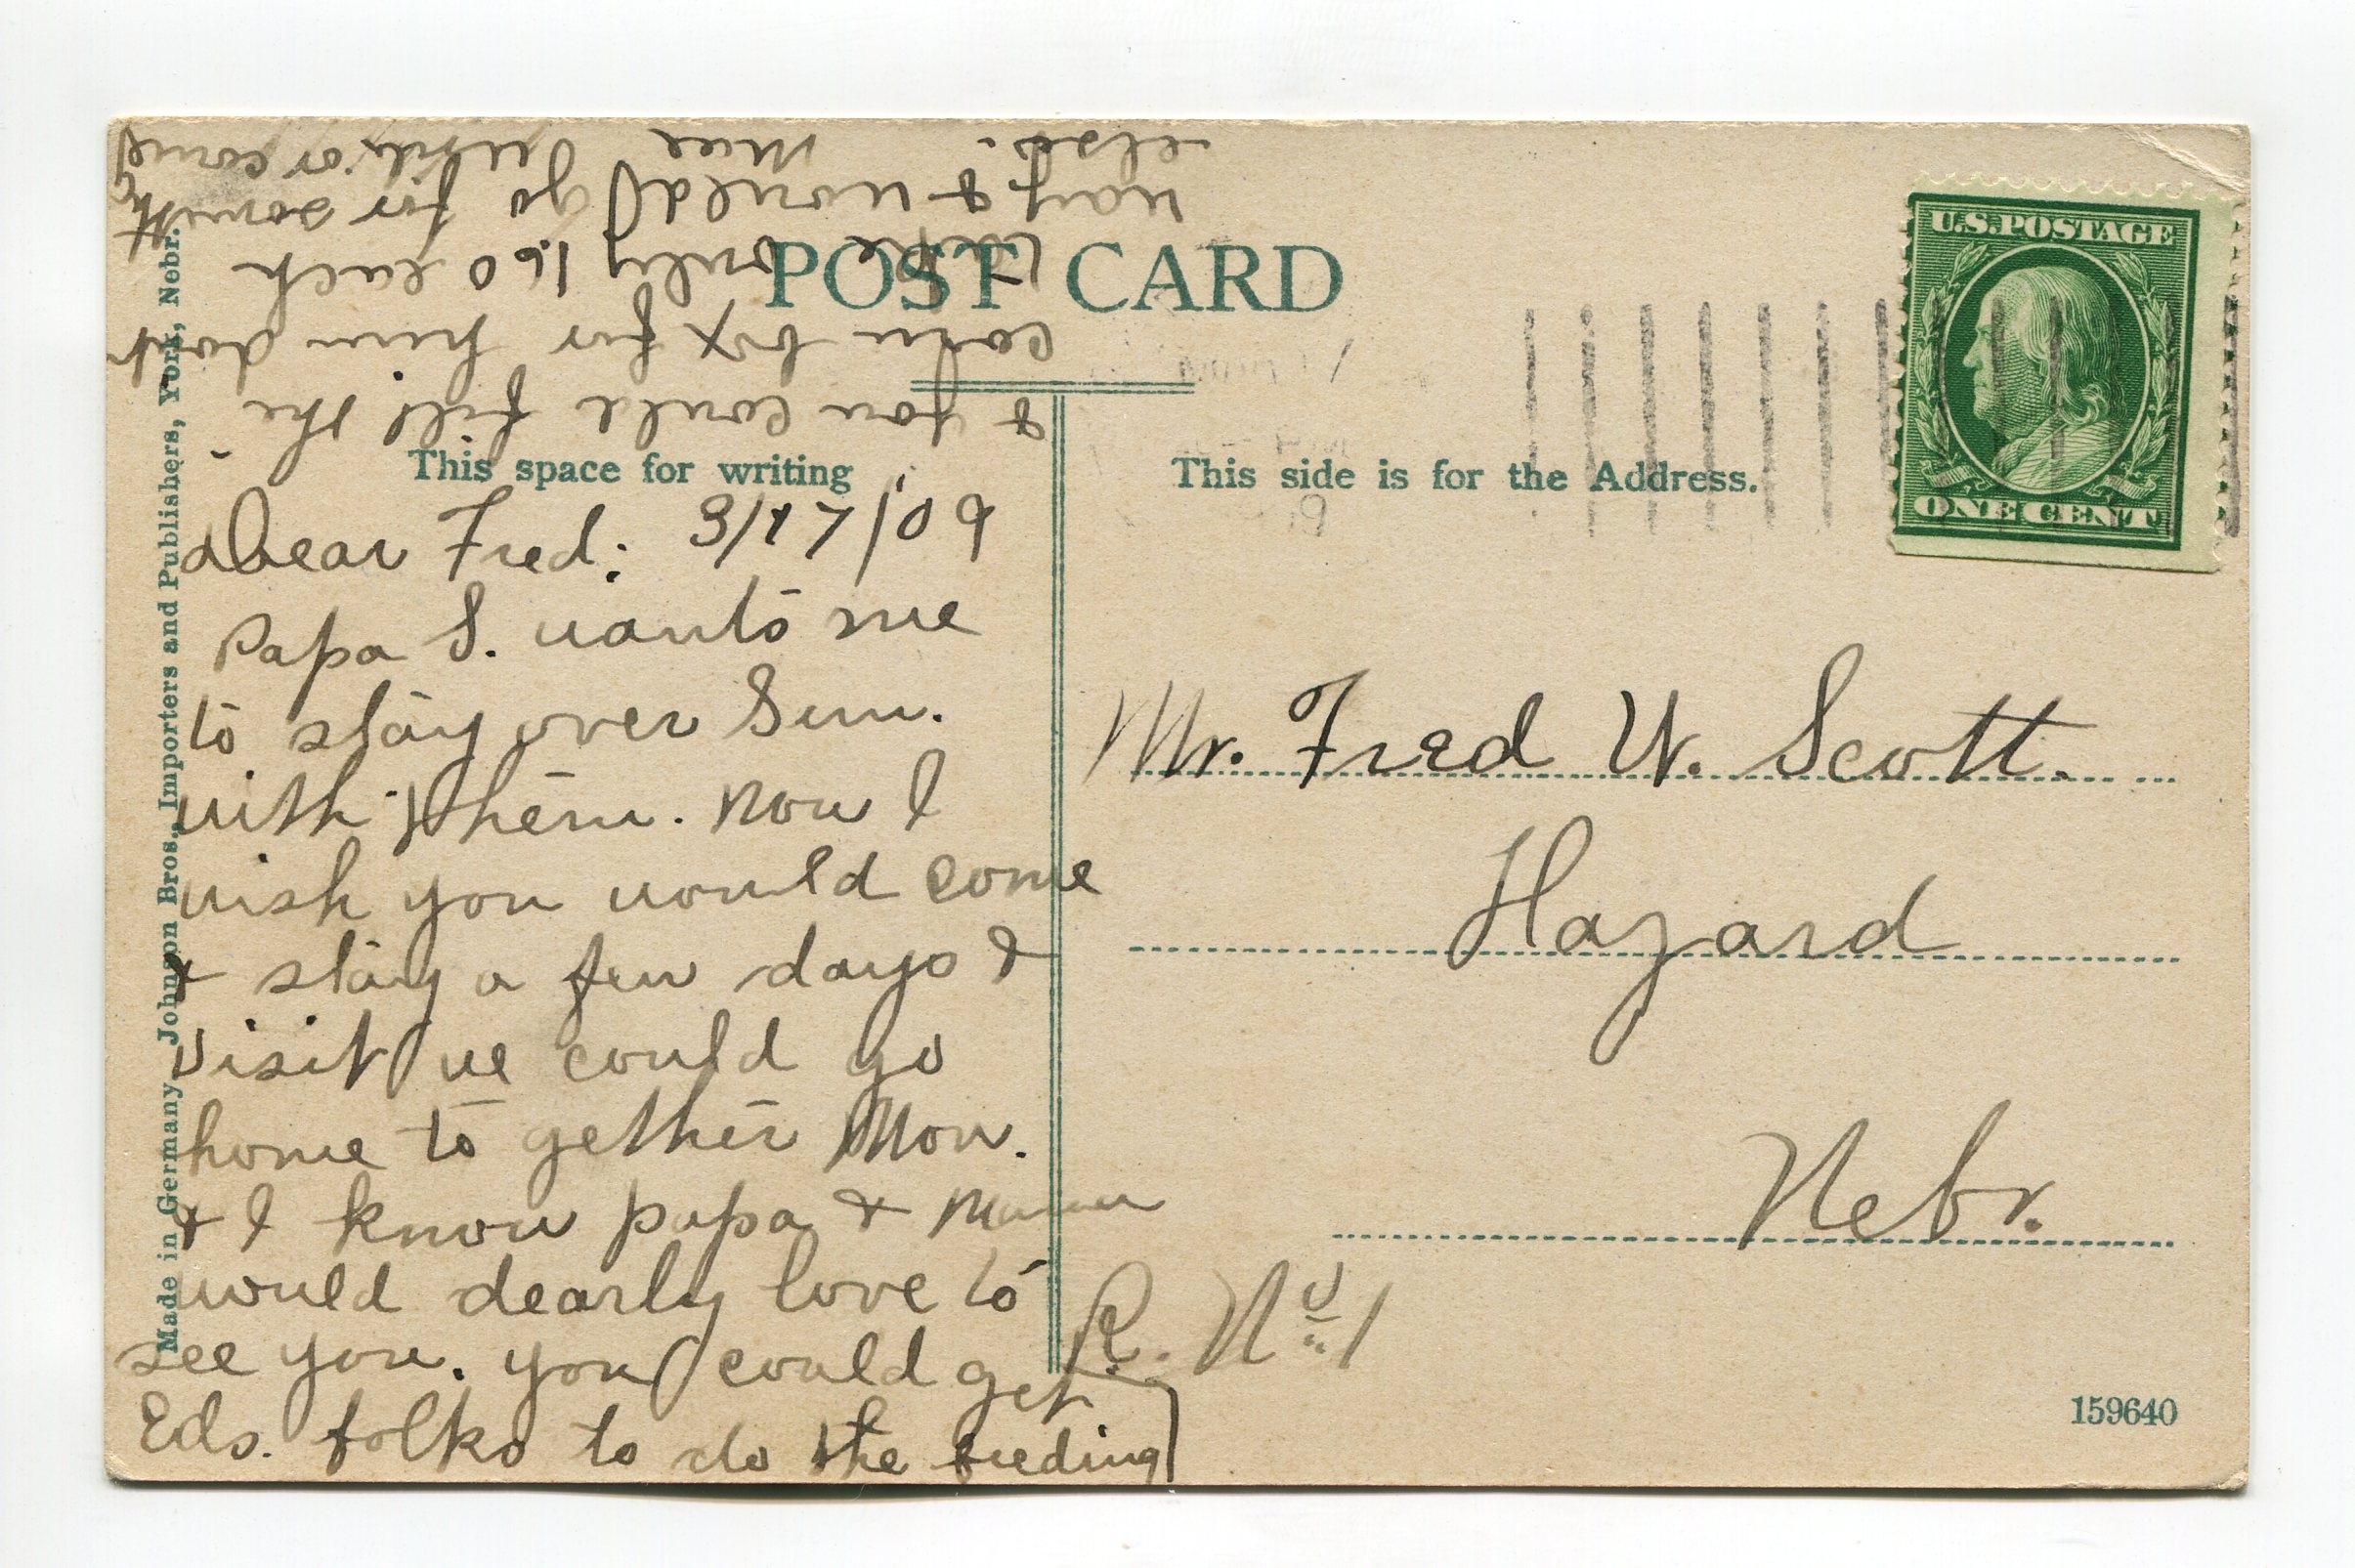 POST CARD
This space for writing
This side is for the Address.
U.S. POSTAGE
ONE CENT
Made in Germany Johnson Bros., Importers and Publishers, York, Nebr.
Dear Fred: 3/17/09
Papa S. wants me
to stay over Sun.
with them. Now I
wish you would come
& stay a few days &
visit we could go
home to gether Mon.
& I know papa & Mama
would dearly love to
see you. you could get
Eds. folks to do the feeding
& you could fill the
corn box for him don't
take only 1.60 each
way & would go for
else. or come
Mr. Fred W. Scott.
Hazard
Nebr.
R. No. 1
159640